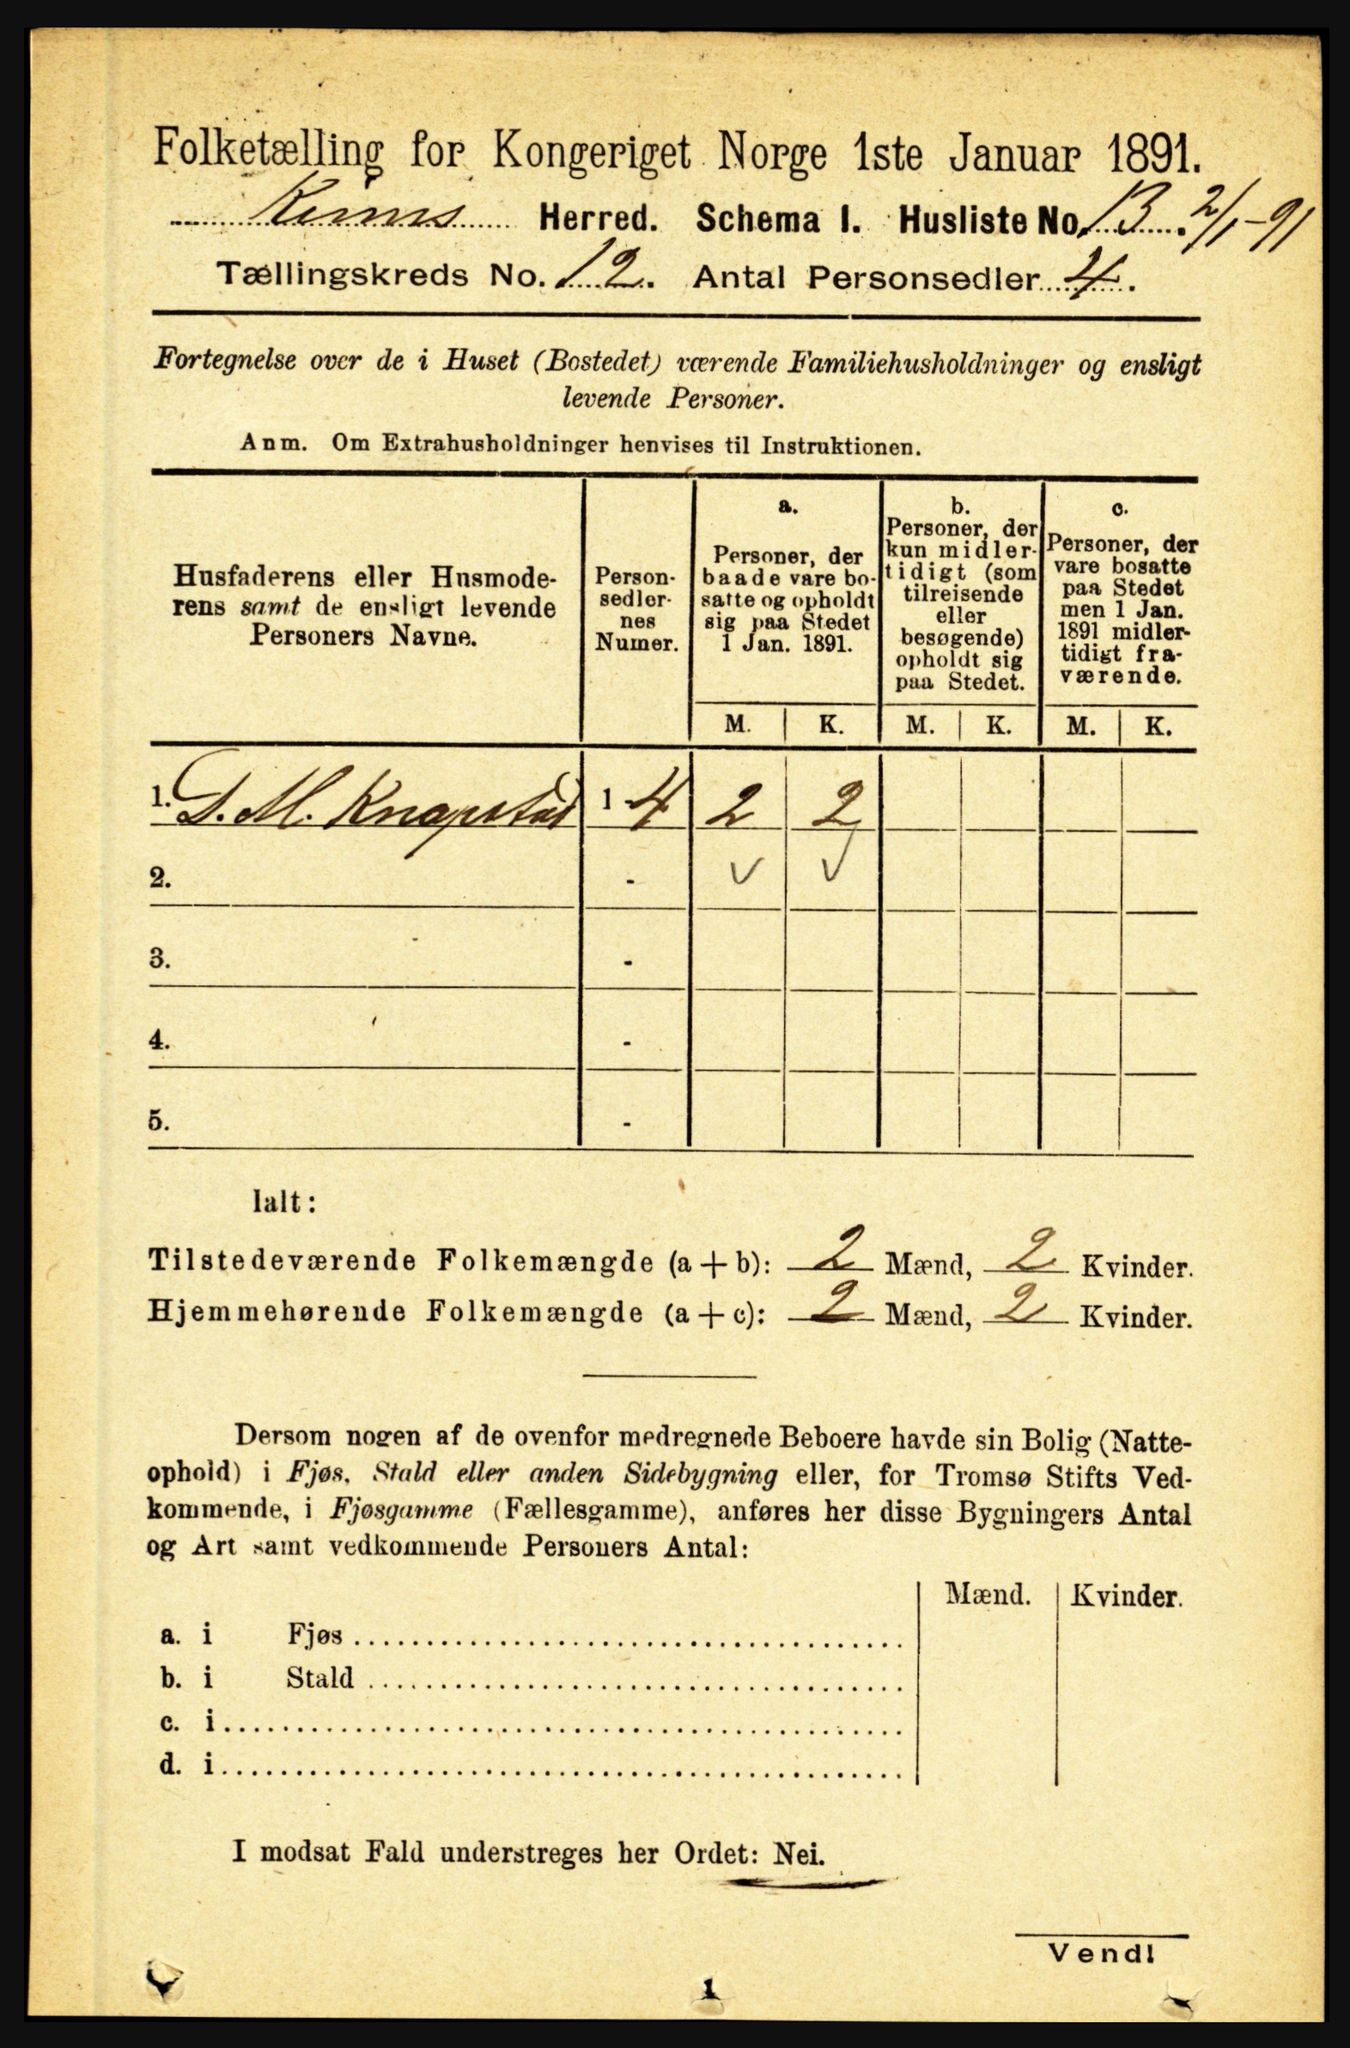 Folketælling for Kongeriget Norge 1ste Januar 1891.
Kinns Herred. Schema I. Husliste No. 13. 2/1-91
Tællingskreds No. 12. Antal Personsedler 4.
Fortegnelse over de i Huset (Bostedet) værende Familiehusholdninger og ensligt
levende Personer.
Anm. Om Extrahusholdninger henvises til Instruktionen.
Husfaderens eller Husmode-
rens samt de ensligt levende
Personers Navne.
Person-
sedler-
nes
Numer.
a.
Personer, der
baade vare bo-
satte og opholdt
sig paa Stedet
1 Jan. 1891.
b.
Personer, der
kun midler-
tidigt (som
tilreisende
eller
besøgende)
opholdt sig
paa Stedet.
c.
Personer, der
vare bosatte
paa Stedet
men 1 Jan.
1891 midler-
tidigt fra-
værende.
M. K. M. K. M. K.
1. D. M. Knapstad 1-4 2 2
2. -
3. -
4. -
5. -
Ialt:
Tilstedeværende Folkemængde (a+b): 2 Mænd, 2 Kvinder.
Hjemmehørende Folkemængde (a+c): 2 Mænd, 2 Kvinder.
Dersom nogen af de ovenfor medregnede Beboere havde sin Bolig (Natte-
ophold) i Fjøs, Stald eller anden Sidebygning eller, for Tromsø Stifts Ved-
kommende, i Fjøsgamme (Fællesgamme), anføres her disse Bygningers Antal
og Art samt vedkommende Personers Antal:
Mænd. Kvinder.
a. i Fjøs
b. i Stald
c. i
d. i
I modsat Fald understreges her Ordet: Nei.
Vend!
1